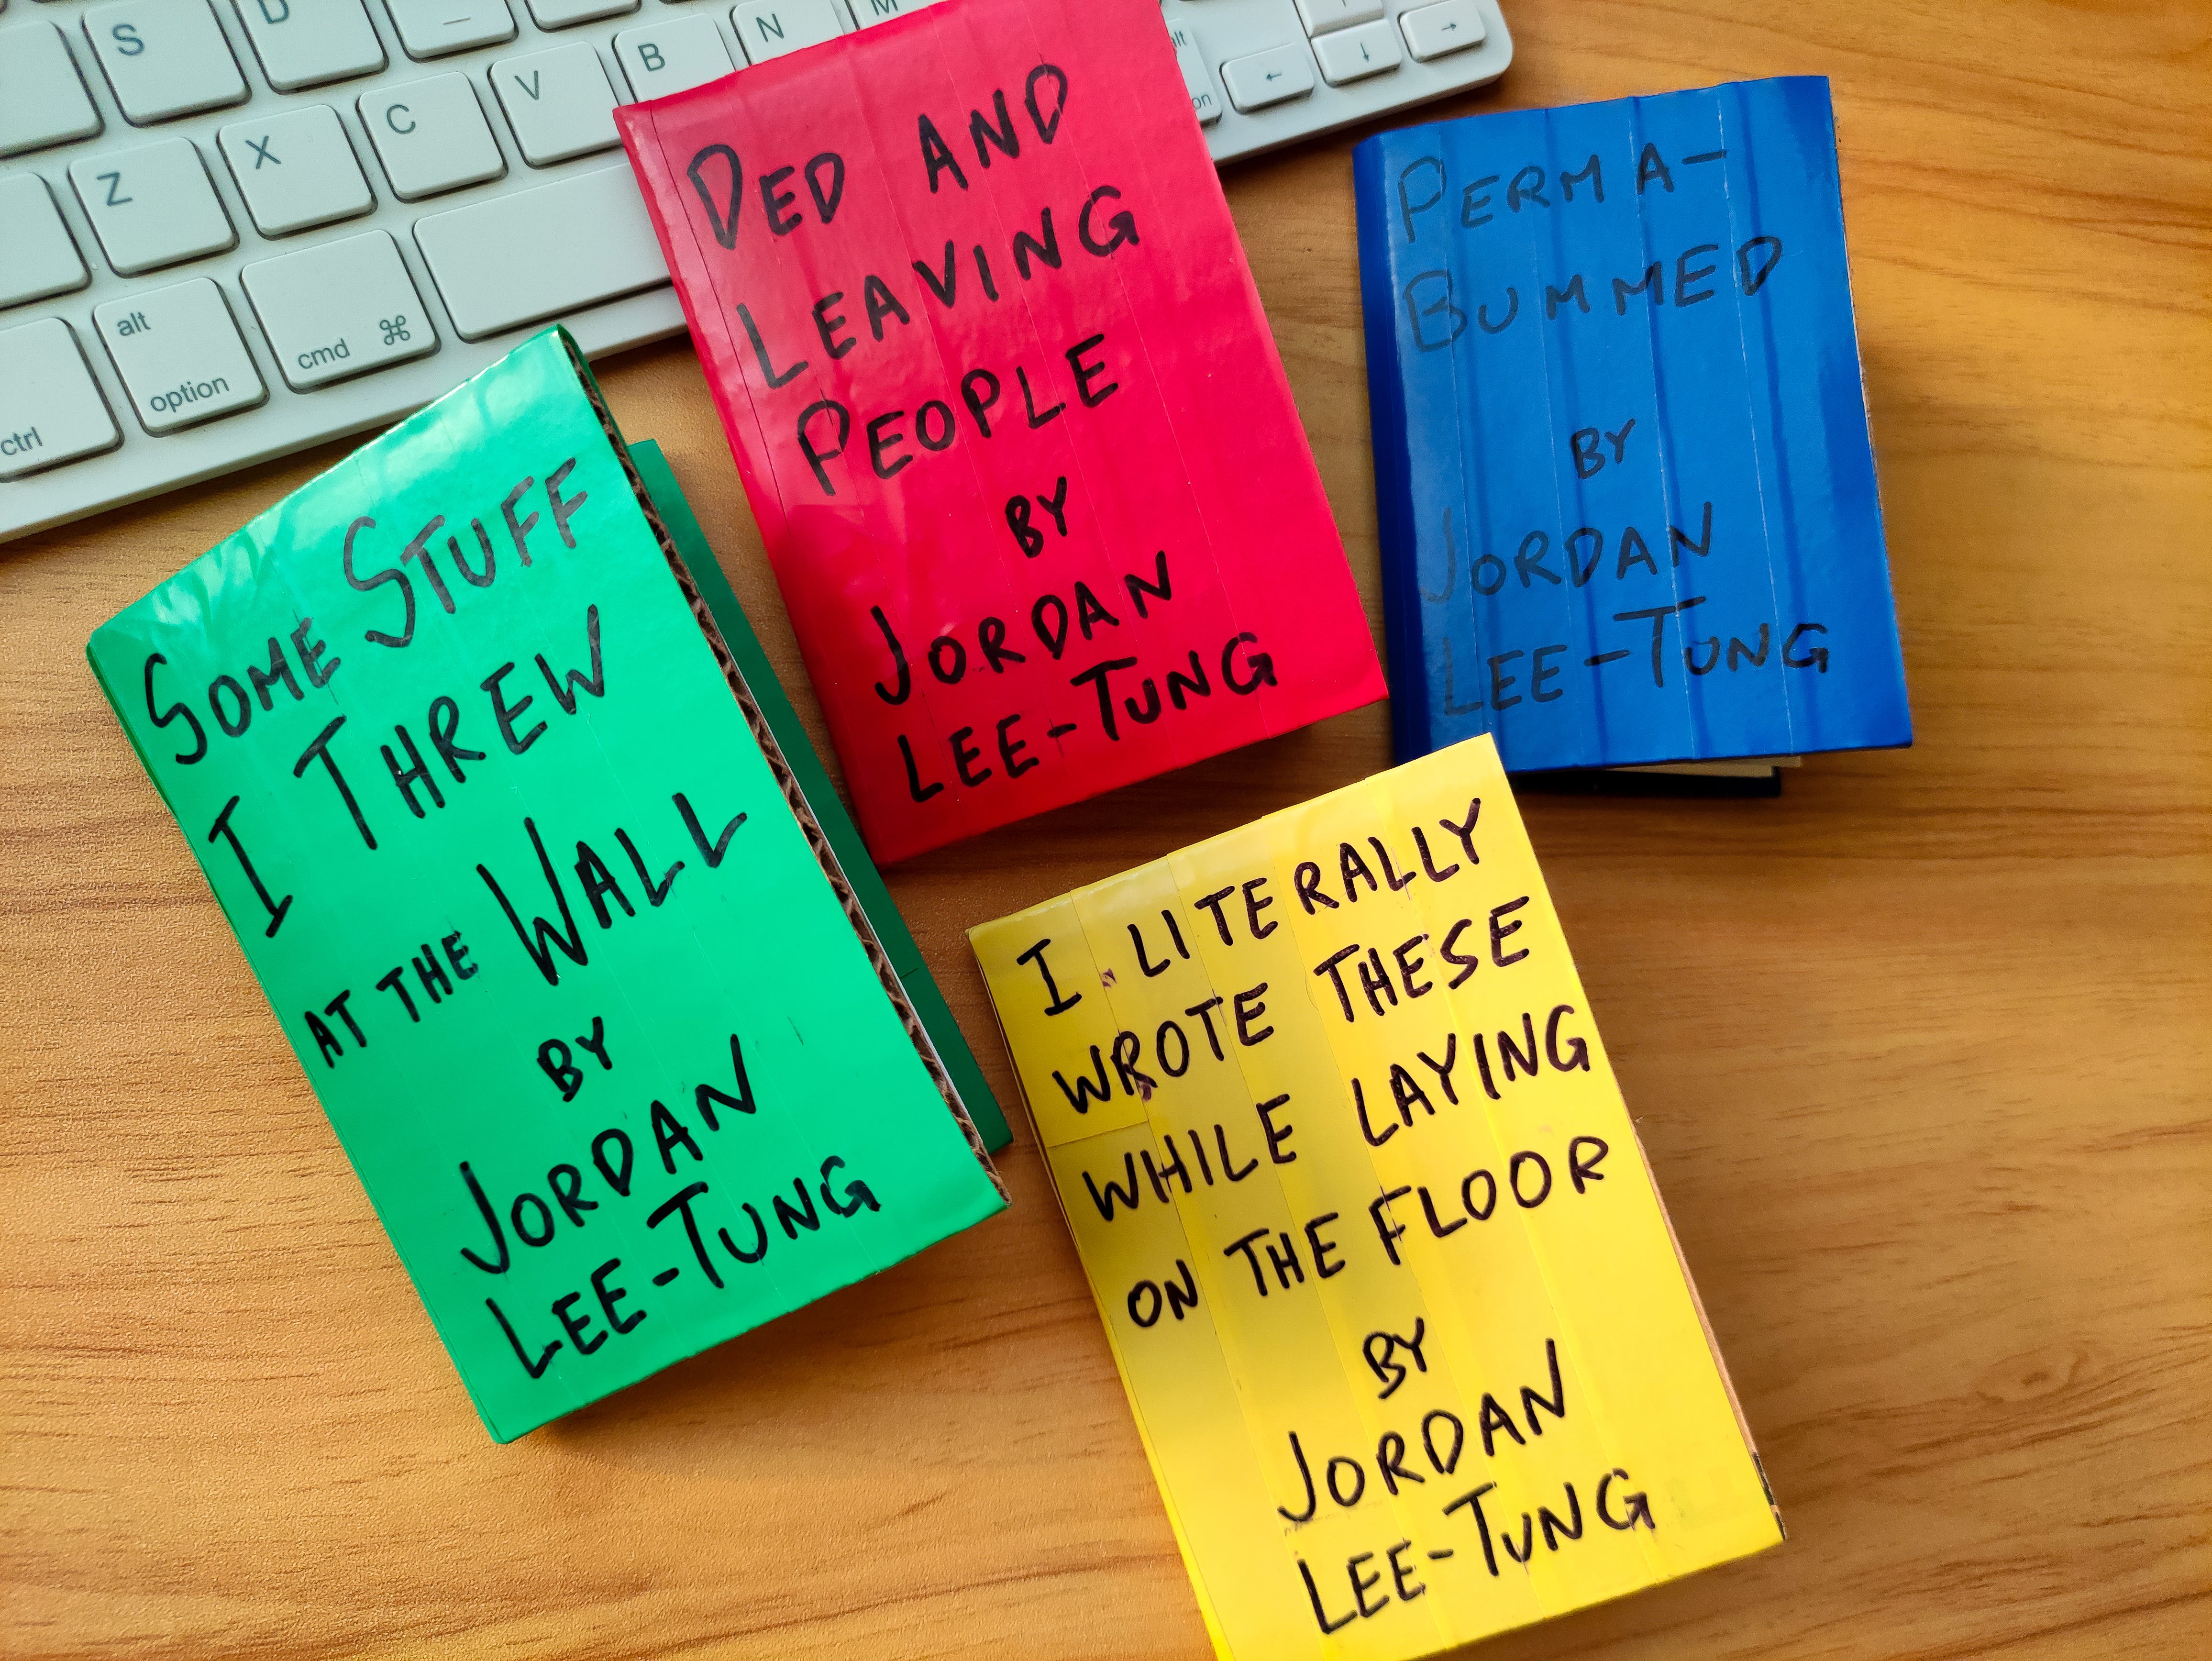 S
D
Z
X
C
V
B
N
M
alt
option
cmd ⌘
ctrl
←
↓
→
DED AND
LEAVING
PEOPLE
BY
JORDAN
LEE-TUNG
PERMA-
BUMMED
BY
JORDAN
LEE-TUNG
SOME STUFF
I THREW
AT THE WALL
BY
JORDAN
LEE-TUNG
I LITERALLY
WROTE THESE
WHILE LAYING
ON THE FLOOR
BY
JORDAN
LEE-TUNG